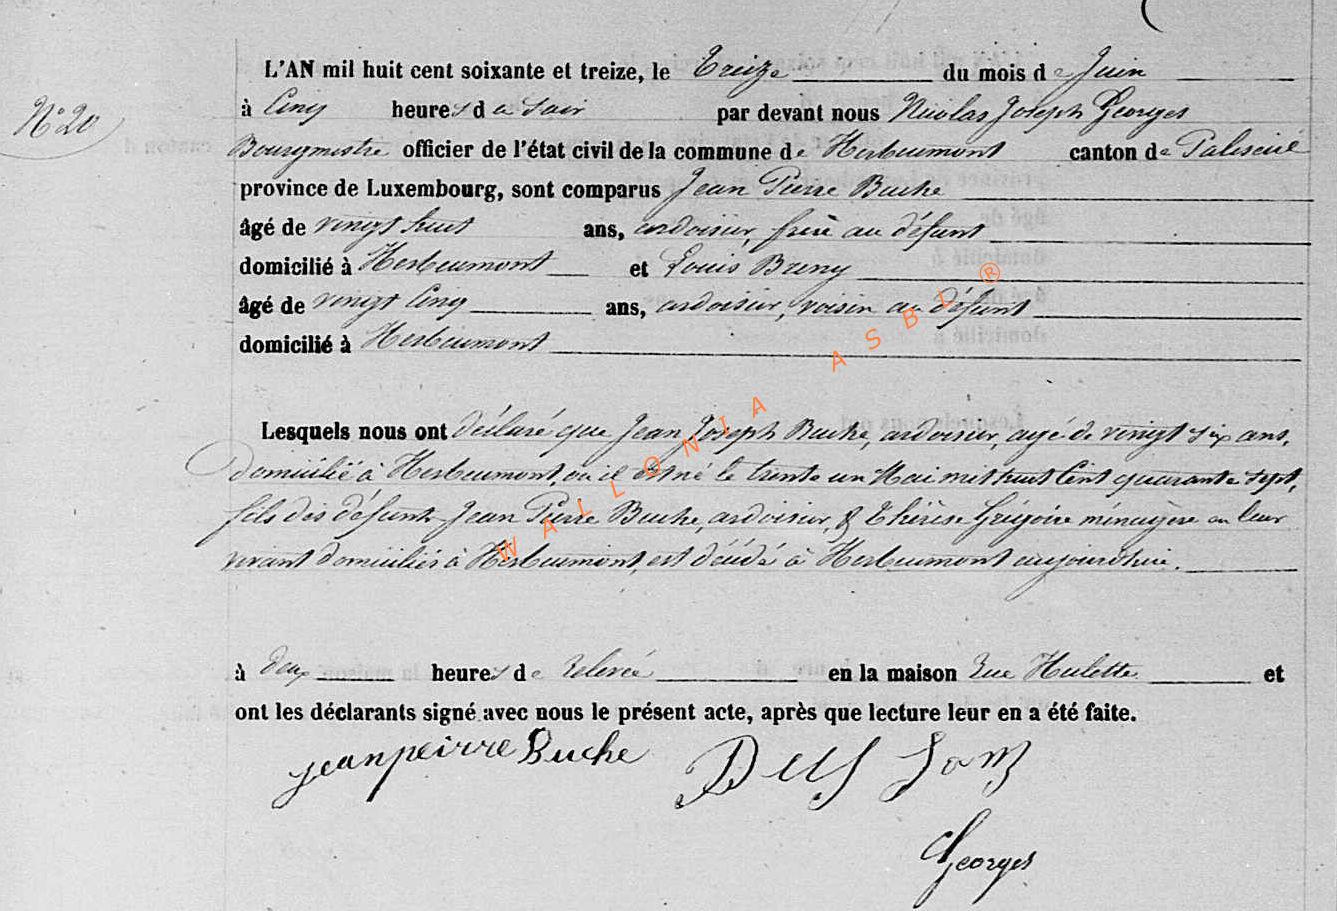 L'AN mil huit cent soixante et treize, le Treize du mois de Juin
N° 20
à Cinq heures du soir par devant nous Nicolas Joseph Georges
Bourgmestre officier de l'état civil de la commune de Herbeumont canton de Paliseul
province de Luxembourg, sont comparus Jean Pierre Buche
âgé de vingt huit ans, ardoisier, frère au défunt
domicilié à Herbeumont et Louis
âgé de vingt Cinq ans, ardoisier, voisin au défunt
domicilié à Herbeumont
Lesquels nous ont déclaré que Jean Joseph Buche, ardoisier, agé de vingt six ans,
domicilié à Herbeumont, où il est né le trente un Mai mil huit Cent quarante sept,
fils des défunts Jean Pierre Buche, ardoisier, & Thérèse Grégoire ménagère en leur
vivant domiciliés à Herbeumont, est décédé à Herbeumont aujourd'hui.
à deux heures de relevée en la maison rue Hulette et
ont les déclarants signé avec nous le présent acte, après que lecture leur en a été faite.
jeanpeirre Buche
Georges
WALLONIA ASBL ®